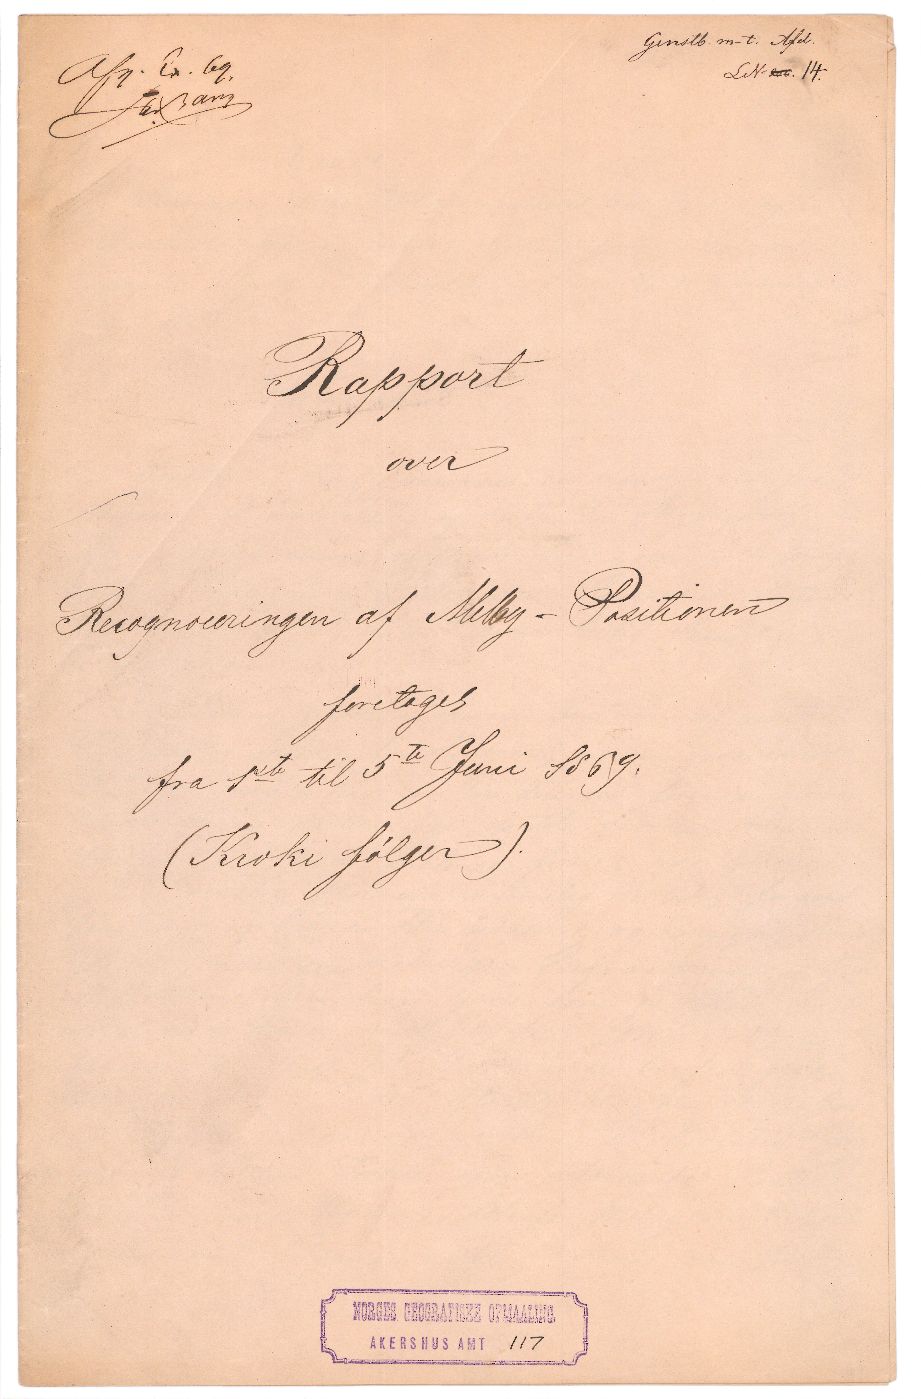 Afg. Ex. 69.
Genstb. m-t. Afd.
LN 14.
Rapport
over
Recognoceringen af Melby-Positionen
foretaget
fra 1ste til 5te Juni 1869.
(Kroki følger).
NORGES GEOGRAFISKE OPMAALING
AKERSHUS AMT 117